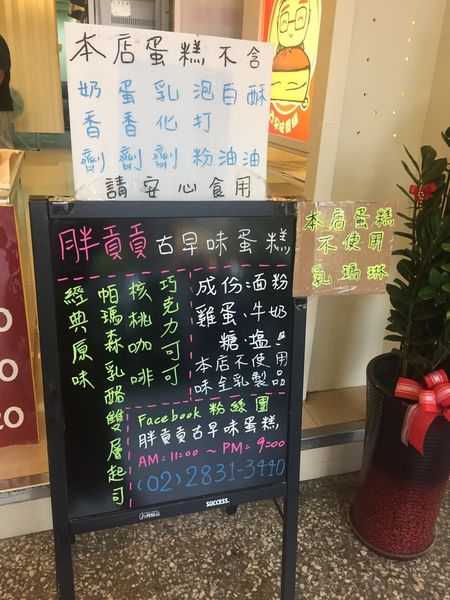 本店蛋糕不含
奶香劑
蛋香劑
乳化劑
泡打粉
白油
酥油
請安心食用
胖貢貢古早味蛋糕
巧克力可可
核桃咖啡
帕瑪森乳酪雙層起司
經典原味
成份:面粉
雞蛋、牛奶
糖、塩。
本店不使用
味全乳製品
Facebook 粉絲團
胖貢貢古早味蛋糕
AM:11:00 ~ PM:9:00
(02)2831-3440
SUCCESS.
本店蛋糕
不使用
乳瑪琳